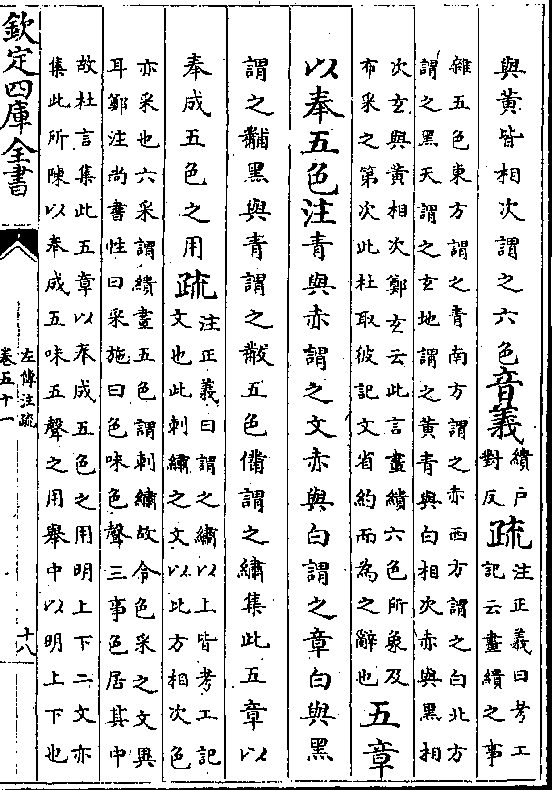 與黃皆相次謂之六色音義繢戶
對反疏注正義曰考工
記云畫繢之事
雜五色東方謂之青南方謂之赤西方謂之白北方
謂之黑天謂之玄地謂之黃青與白相次赤與黑相
次玄與黃相次鄭玄云此言畫繢六色所象及
布采之第次此杜取彼記文省約而為之辭也五章
以奉五色注青與赤謂之文赤與白謂之章白與黑
謂之黼黑與青謂之黻五色備謂之繡集此五章以
奉成五色之用疏注正義曰謂之繡以上皆考工記
文也此刺繡之文以比方相次色
亦采也六采謂繢畫五色謂刺繡故令色采之文異
耳鄭注尚書性曰采施曰色味色聲三事色居其中
故杜言集此五章以奉成五色之用明上下二文亦
集此所陳以奉成五味五聲之用舉中以明上下也
欽定四庫全書
左傳注疏
卷五十一
十八